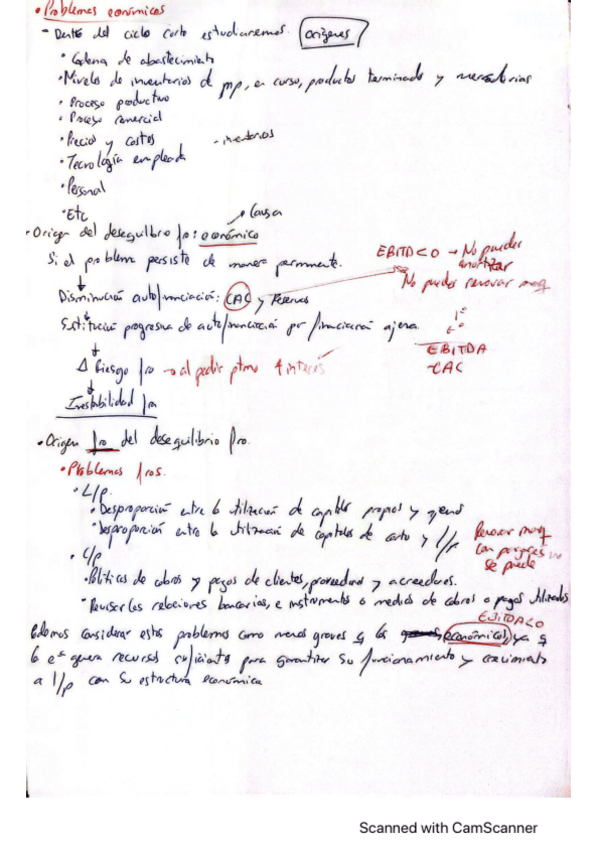 • Problemas económicos
- Dentro del ciclo corto estudiaremos. orígenes
• Cadena de abastecimiento
• Niveles de inventarios de mp, en curso, productos terminado y mercaderías
• Proceso productivo
• Proceso comercial
• Precios y costos - inventarios
• Tecnología empleada
• Personal
• Etc
→ Causa
• Origen del desequilibro fro: económico
EBITD < 0 → No puedes amortizar
Si el problema persiste de manera permanente.
No puedes renovar maq
Disminución autofinanciación: CAC y Reservas
Sustitución progresiva de autofinanciación por financiación ajena.
EBITDA
CAC
Δ Riesgo fro → al pedir ptmo ↑ interés
Inestabilidad fra
• Origen fro del desequilibrio fro.
• Problemas fros.
• L/p.
• Desproporción entre la utilización de capitales propios y ajenos
• Desproporción entre la utilización de capitales de corto y l/p
Renovar maq con pagarés no se puede
• C/p
• Políticas de cobros y pagos de clientes, proveedores y acreedores.
• Revisar las relaciones bancarias, e instrumentos o medios de cobros o pagos utilizados
EBITDA<0
Podemos considerar estos problemas como menos graves q los económicos, ya q
la eª genera recursos suficientes para garantizar su funcionamiento y crecimiento
a l/p con su estructura económica
Scanned with CamScanner